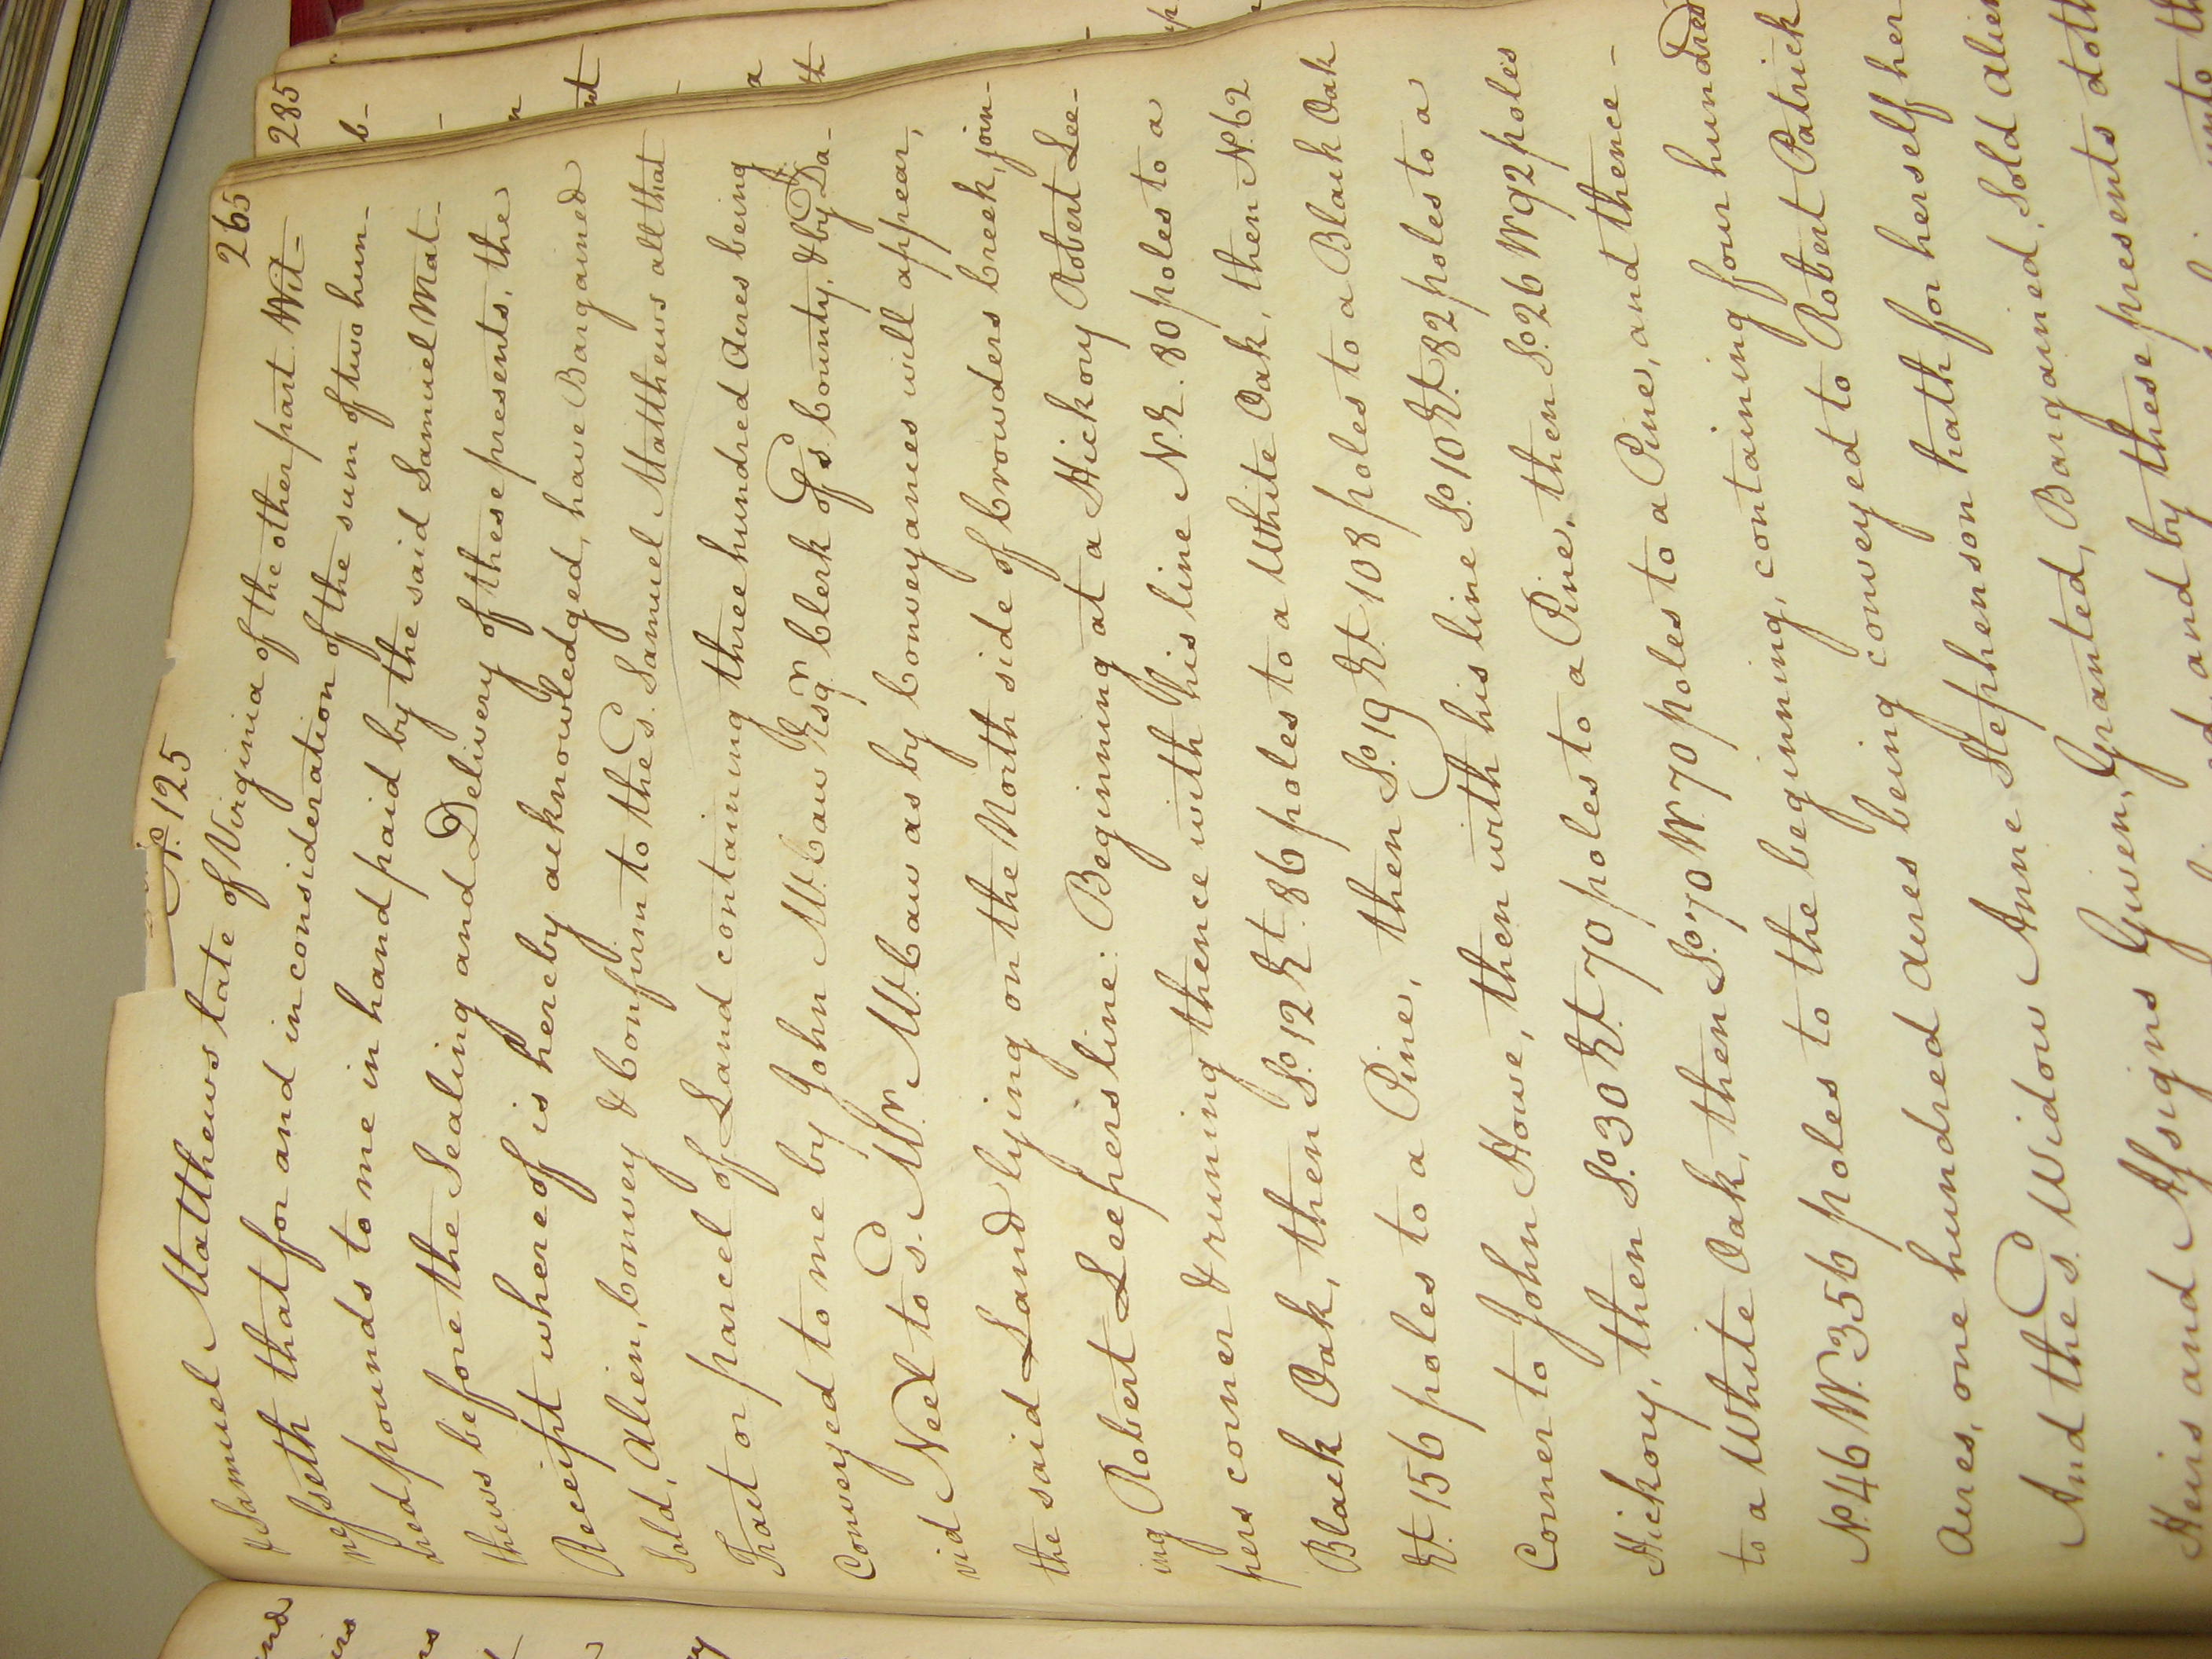 285
265
No. 125
& Samuel Matthews late of Virginia of the other part Wit-
nesseth that for and in consideration of the sum of two hun-
dred pounds to me in hand paid by the said Samuel Mat-
thews before the Sealing and Delivery of these presents, the
Receipt whereof is hereby acknowledged, have Bargained
Sold, Alien, Convey & Confirm to the sd. Samuel Matthews all that
Tract or parcel of Land containing three hundred Acres being
Conveyed to me by John McCaw Esqr. Clerk of sd. County, & by Da-
vid Neel to sd. Mr. McCaw as by Conveyances will appear,
the said Land lying on the North side of Crowders Creek, join-
ing Robert Leepers line: Beginning at a Hickory Robert Lee-
pers corner & runing thence with his line N.E. 80 poles to a
Black Oak, then So. 12 Et. 86 poles to a White Oak, then N. 62
Et. 156 poles to a Pine, then So. 19 Et. 108 poles to a Black Oak
Corner to John Howe, then with his line So. 10 Et. 82 poles to a
Hickory, then So. 30 Et. 70 poles to a Pine, then So. 26 W 92 poles
to a White Oak, then So. 70 W. 70 poles to a Pine, and thence -
No. 46 W. 356 poles to the beginning, containing four hundred
Acres, one hundred acres being conveyed to Robert Patrick
And the sd. Widow Anne Stephenson hath for herself her
Heirs and Assigns Given, Granted, Bargained, Sold Alien
and by these presents doth
unto th